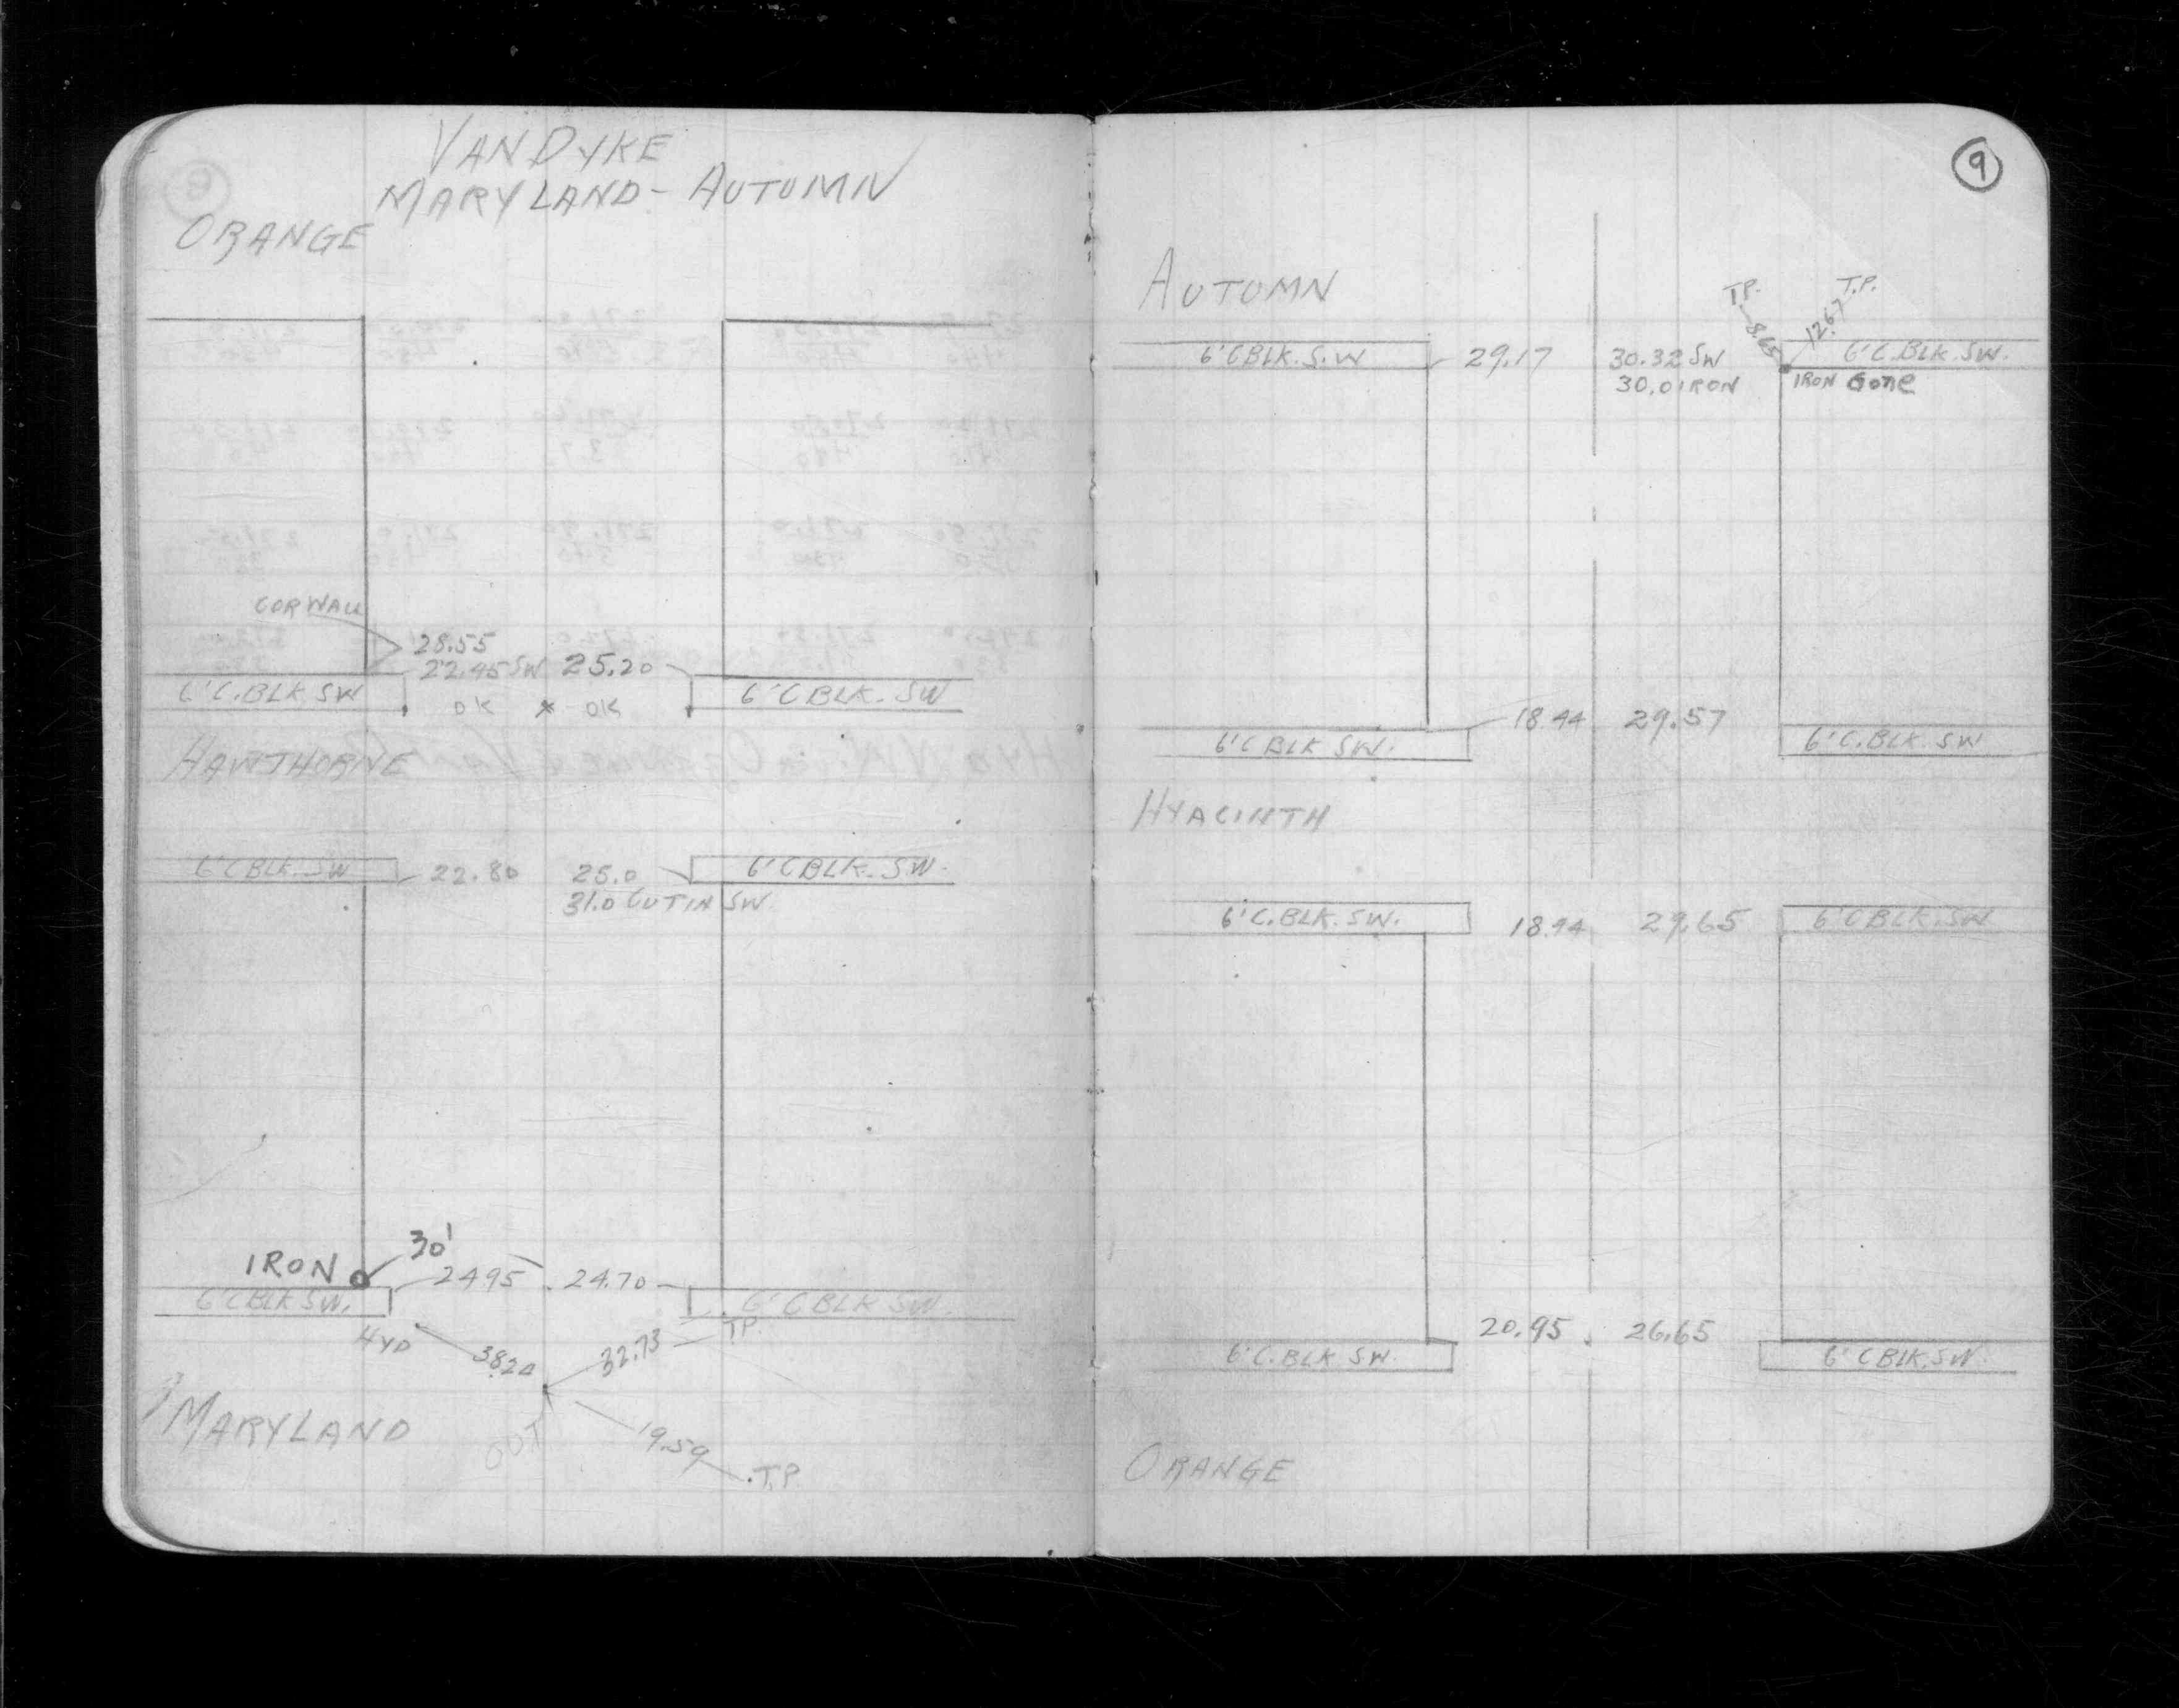 VAN DYKE
MARYLAND - AUTUMN
ORANGE
COR WALL
28.55
22.45 SW 25.20
6' C. BLK SW
OK * OK
6' C BLK. SW
HAWTHORNE
6' C BLK. SW
22.80
25.0
6' C BLK. SW.
31.0 CUT IN SW.
IRON
30'
24.95
24.70
6' C BLK SW.
6' C BLK SW.
HYD
38.20
32.73
T.P.
MARYLAND
OUT
19.59
T.P.
9
AUTUMN
T.P.
8.65
T.P.
12.67
6' C BLK. S.W
29.17
30.32 SW
6' C. BLK. SW.
30.0 IRON
IRON Gone
18.94
29.57
6' C BLK SW.
6' C. BLK SW
HYACINTH
6' C. BLK. SW.
18.94
29.65
6' C BLK. SW
20.95
26.65
6' C. BLK SW.
6' C BLK. SW.
ORANGE